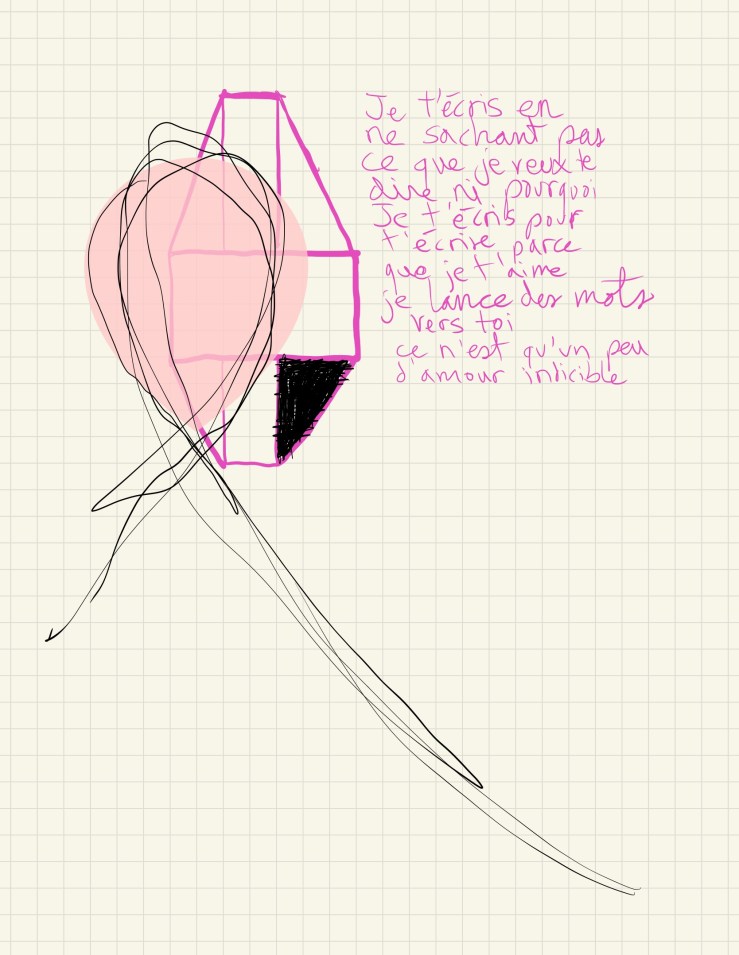 Je t'écris en
ne sachant pas
ce que je veux te
dire ni pourquoi
Je t'écris pour
t'écrire parce
que je t'aime
je lance des mots
vers toi
ce n'est qu'un peu
d'amour indicible